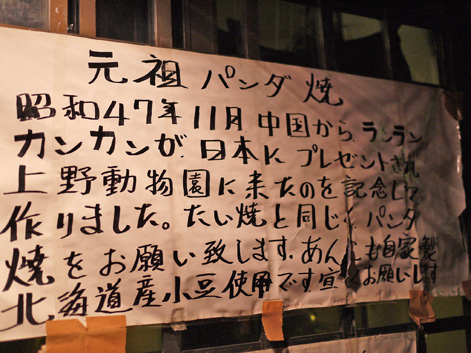 元祖パンダ焼
昭和47年11月中国からランラン
カンカンが、日本にプレゼントされ
上野動物園に来たのを記念して
作りました。たい焼と同じくパンダ
焼をお願い致します。あんこも自家製
北海道産小豆使用です宜くお願いします